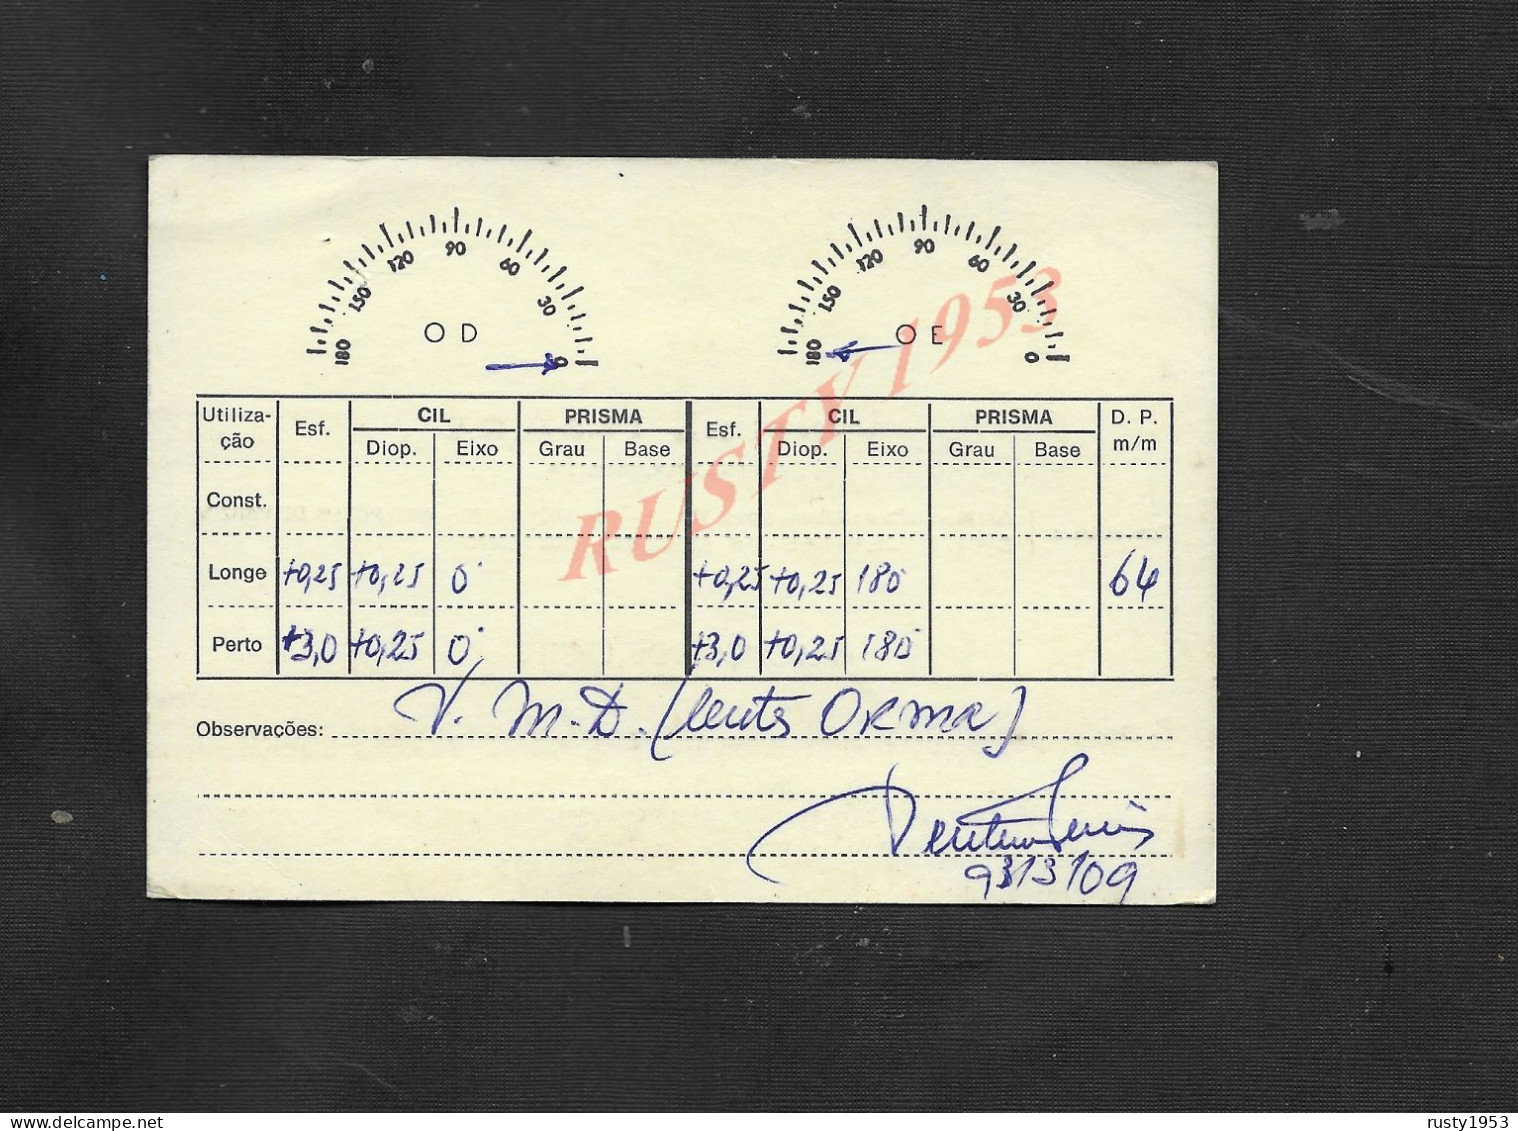 180 150 120 90 60 30 0
O D
180 150 120 90 60 30 0
O E
RUSTY1953
Utiliza-ção Esf. CIL PRISMA Esf. CIL PRISMA D. P. m/m
Diop. Eixo Grau Base Diop. Eixo Grau Base
Const.
Longe +0,25 +0,25 0° +0,25 +0,25 180° 64
Perto +3,0 +0,25 0° +3,0 +0,25 180°
Observações: V. M.D. (lents ORMA)
9313109
delcampe.net
rusty1953